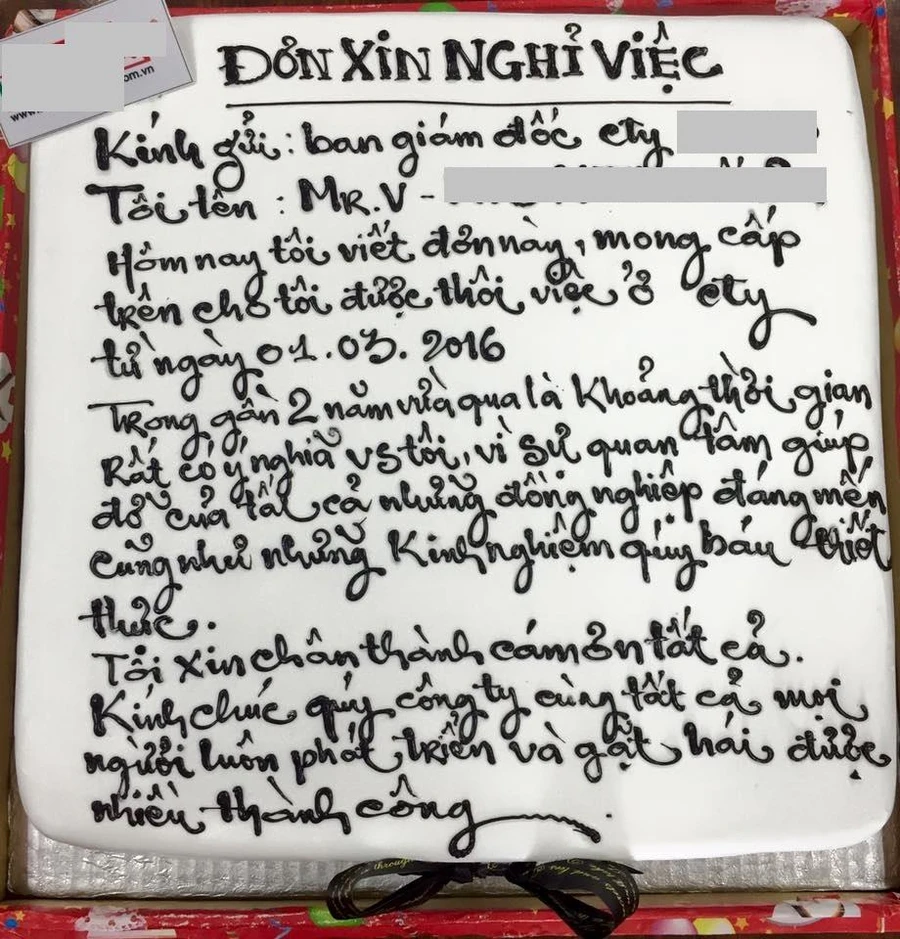 om.vn
www.
ĐƠN XIN NGHỈ VIỆC
Kính gửi: ban giám đốc cty
Tôi tên : MR.V -
Hôm nay tôi viết đơn này, mong cấp
trên cho tôi được thôi việc ở cty
từ ngày 01.03.2016
Trong gần 2 năm vừa qua là khoảng thời gian
Rất có ý nghĩa vs tôi, vì sự quan tâm giúp
đỡ của tất cả những đồng nghiệp đáng mến
cũng như những kinh nghiệm qúy báu
thức.
Tôi xin chân thành cám ơn tất cả.
Kính chúc qúy công ty cùng tất cả mọi
người luôn phát triển và gặt hái được
nhiều thành công
through